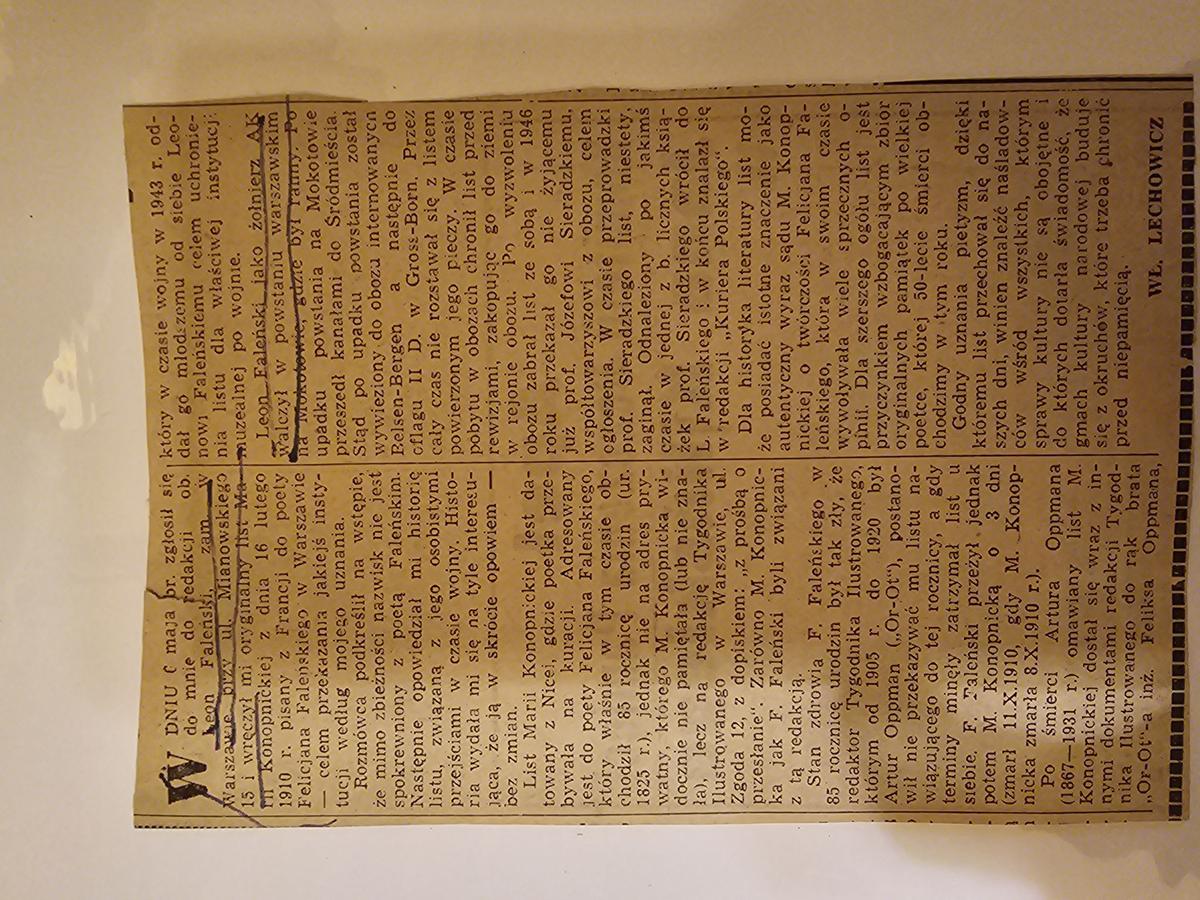 W DNIU ( maja br. zgłosił się
do mnie do redakcji ob.
Leon Faleński, zam. w
Warszawie przy ul. Mianowskiego
15 i wręczył mi oryginalny list Ma-
rii Konopnickiej z dnia 16 lutego
1910 r. pisany z Francji do poety
Felicjana Faleńskiego w Warszawie
— celem przekazania jakiejś insty-
tucji według mojego uznania.
Rozmówca podkreślił na wstępie,
że mimo zbieżności nazwisk nie jest
spokrewniony z poetą Faleńskim.
Następnie opowiedział mi historię
listu, związaną z jego osobistymi
przejściami w czasie wojny. Histo-
ria wydała mi się na tyle interesu-
jąca, że ją w skrócie opowiem —
bez zmian.
List Marii Konopnickiej jest da-
towany z Nicei, gdzie poetka prze-
bywała na kuracji. Adresowany
jest do poety Felicjana Faleńskiego,
który właśnie w tym czasie ob-
chodził 85 rocznicę urodzin (ur.
1825 r.), jednak nie na adres pry-
watny, którego M. Konopnicka wi-
docznie nie pamiętała (lub nie zna-
ła), lecz na redakcję Tygodnika
Ilustrowanego w Warszawie, ul.
Zgoda 12, z dopiskiem: „z prośbą o
przesłanie". Zarówno M. Konopnic-
ka jak F. Faleński byli związani
z tą redakcją.
Stan zdrowia F. Faleńskiego w
85 rocznicę urodzin był tak zły, że
redaktor Tygodnika Ilustrowanego,
którym od 1905 r. do 1920 był
Artur Oppman („Or-Ot"), postano-
wił nie przekazywać mu listu na-
wiązującego do tej rocznicy, a gdy
terminy minęły zatrzymał list u
siebie. F. Faleński przeżył jednak
potem M. Konopnicką o 3 dni
(zmarł 11.X.1910, gdy M. Konop-
nicka zmarła 8.X.1910 r.).
Po śmierci Artura Oppmana
(1867—1931 r.) omawiany list M.
Konopnickiej dostał się wraz z in-
nymi dokumentami redakcji Tygod-
nika Ilustrowanego do rąk brata
„Or-Ot"-a inż. Feliksa Oppmana,
który w czasie wojny w 1943 r. od-
dał go młodszemu od siebie Leo-
nowi Faleńskiemu celem uchronie-
nia listu dla właściwej instytucji
muzealnej po wojnie.
Leon Faleński, jako żołnierz AK
walczył w powstaniu warszawskim
na Mokotowie, gdzie był ranny. Po
upadku powstania na Mokotowie
przeszedł kanałami do Śródmieścia.
Stąd po upadku powstania został
wywieziony do obozu internowanych
Belsen-Bergen a następnie do
oflagu II D. w Gross-Born. Przez
cały czas nie rozstawał się z listem
powierzonym jego pieczy. W czasie
pobytu w obozach chronił list przed
rewizjami, zakopując go do ziemi
w rejonie obozu. Po wyzwoleniu
obozu zabrał list ze sobą i w 1946
roku przekazał go nie żyjącemu
już prof. Józefowi Sieradzkiemu,
współtowarzyszowi z obozu, celem
ogłoszenia. W czasie przeprowadzki
prof. Sieradzkiego list, niestety,
zaginął. Odnaleziony po jakimś
czasie w jednej z b. licznych ksią-
żek prof. Sieradzkiego wrócił do
L. Faleńskiego i w końcu znalazł się
w redakcji „Kuriera Polskiego".
Dla historyka literatury list mo-
że posiadać istotne znaczenie jako
autentyczny wyraz sądu M. Konop-
nickiej o twórczości Felicjana Fa-
leńskiego, która w swoim czasie
wywoływała wiele sprzecznych o-
pinii. Dla szerszego ogółu list jest
przyczynkiem wzbogacającym zbiór
oryginalnych pamiątek po wielkiej
poetce, której 50-lecie śmierci ob-
chodzimy w tym roku.
Godny uznania pietyzm, dzięki
któremu list przechował się do na-
szych dni, winien znaleźć naśladow-
ców wśród wszystkich, którym
sprawy kultury nie są obojętne i
do których dotarła świadomość, że
gmach kultury narodowej buduje
się z okruchów, które trzeba chronić
przed niepamięcią.
WŁ. LECHOWICZ